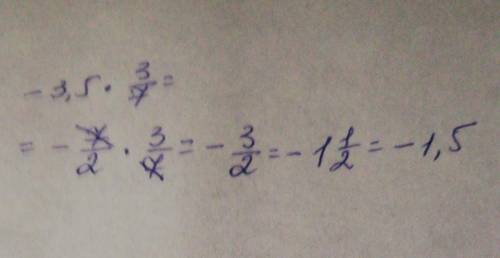 -3,5 · 3/7 =
= - 7/2 · 3/7 = - 3/2 = - 1 1/2 = - 1,5